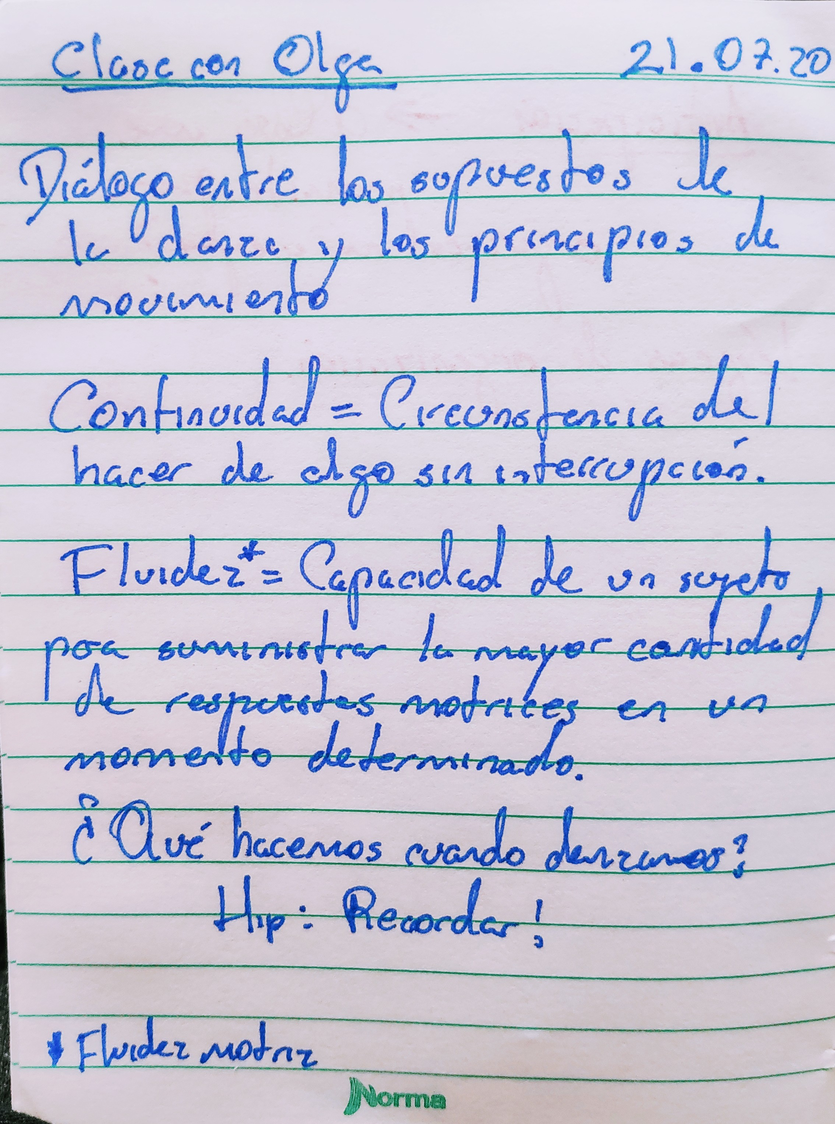 Clase con Olga 21.07.20
Diálogo entre los supuestos de
la danza y los principios de
movimiento
Continuidad = Circunstancia del
hacer de algo sin interrupción.
Fluidez* = Capacidad de un sujeto
para suministrar la mayor cantidad
de respuestas motrices en un
momento determinado.
¿Qué hacemos cuando danzamos?
Hip: Recordar!
* Fluidez motriz
Norma